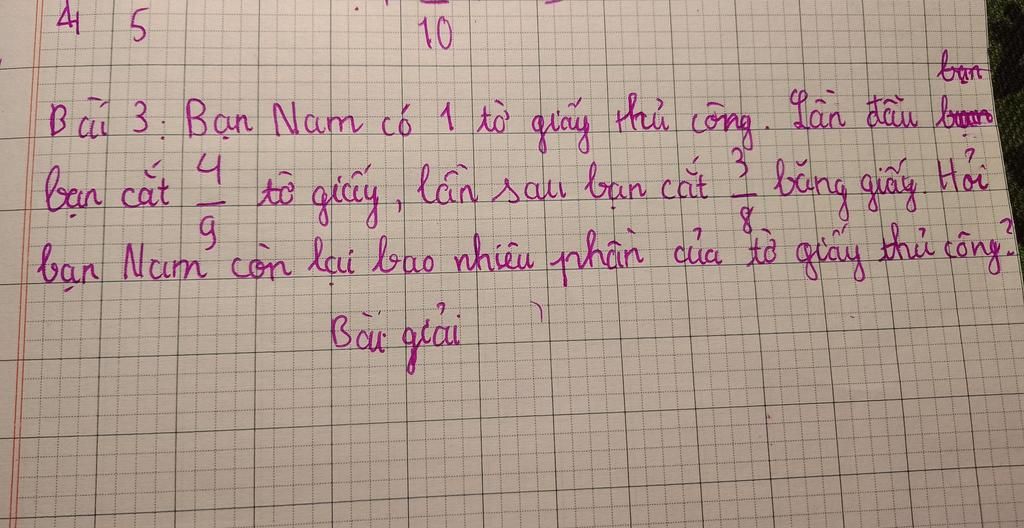 4 5 10
bạn
Bài 3: Bạn Nam có 1 tờ giấy thủ công. Lần đầu
bạn cắt 4/9 tờ giấy, lần sau bạn cắt 3/8 băng giấy. Hỏi
bạn Nam còn lại bao nhiêu phần của tờ giấy thủ công?
Bài giải